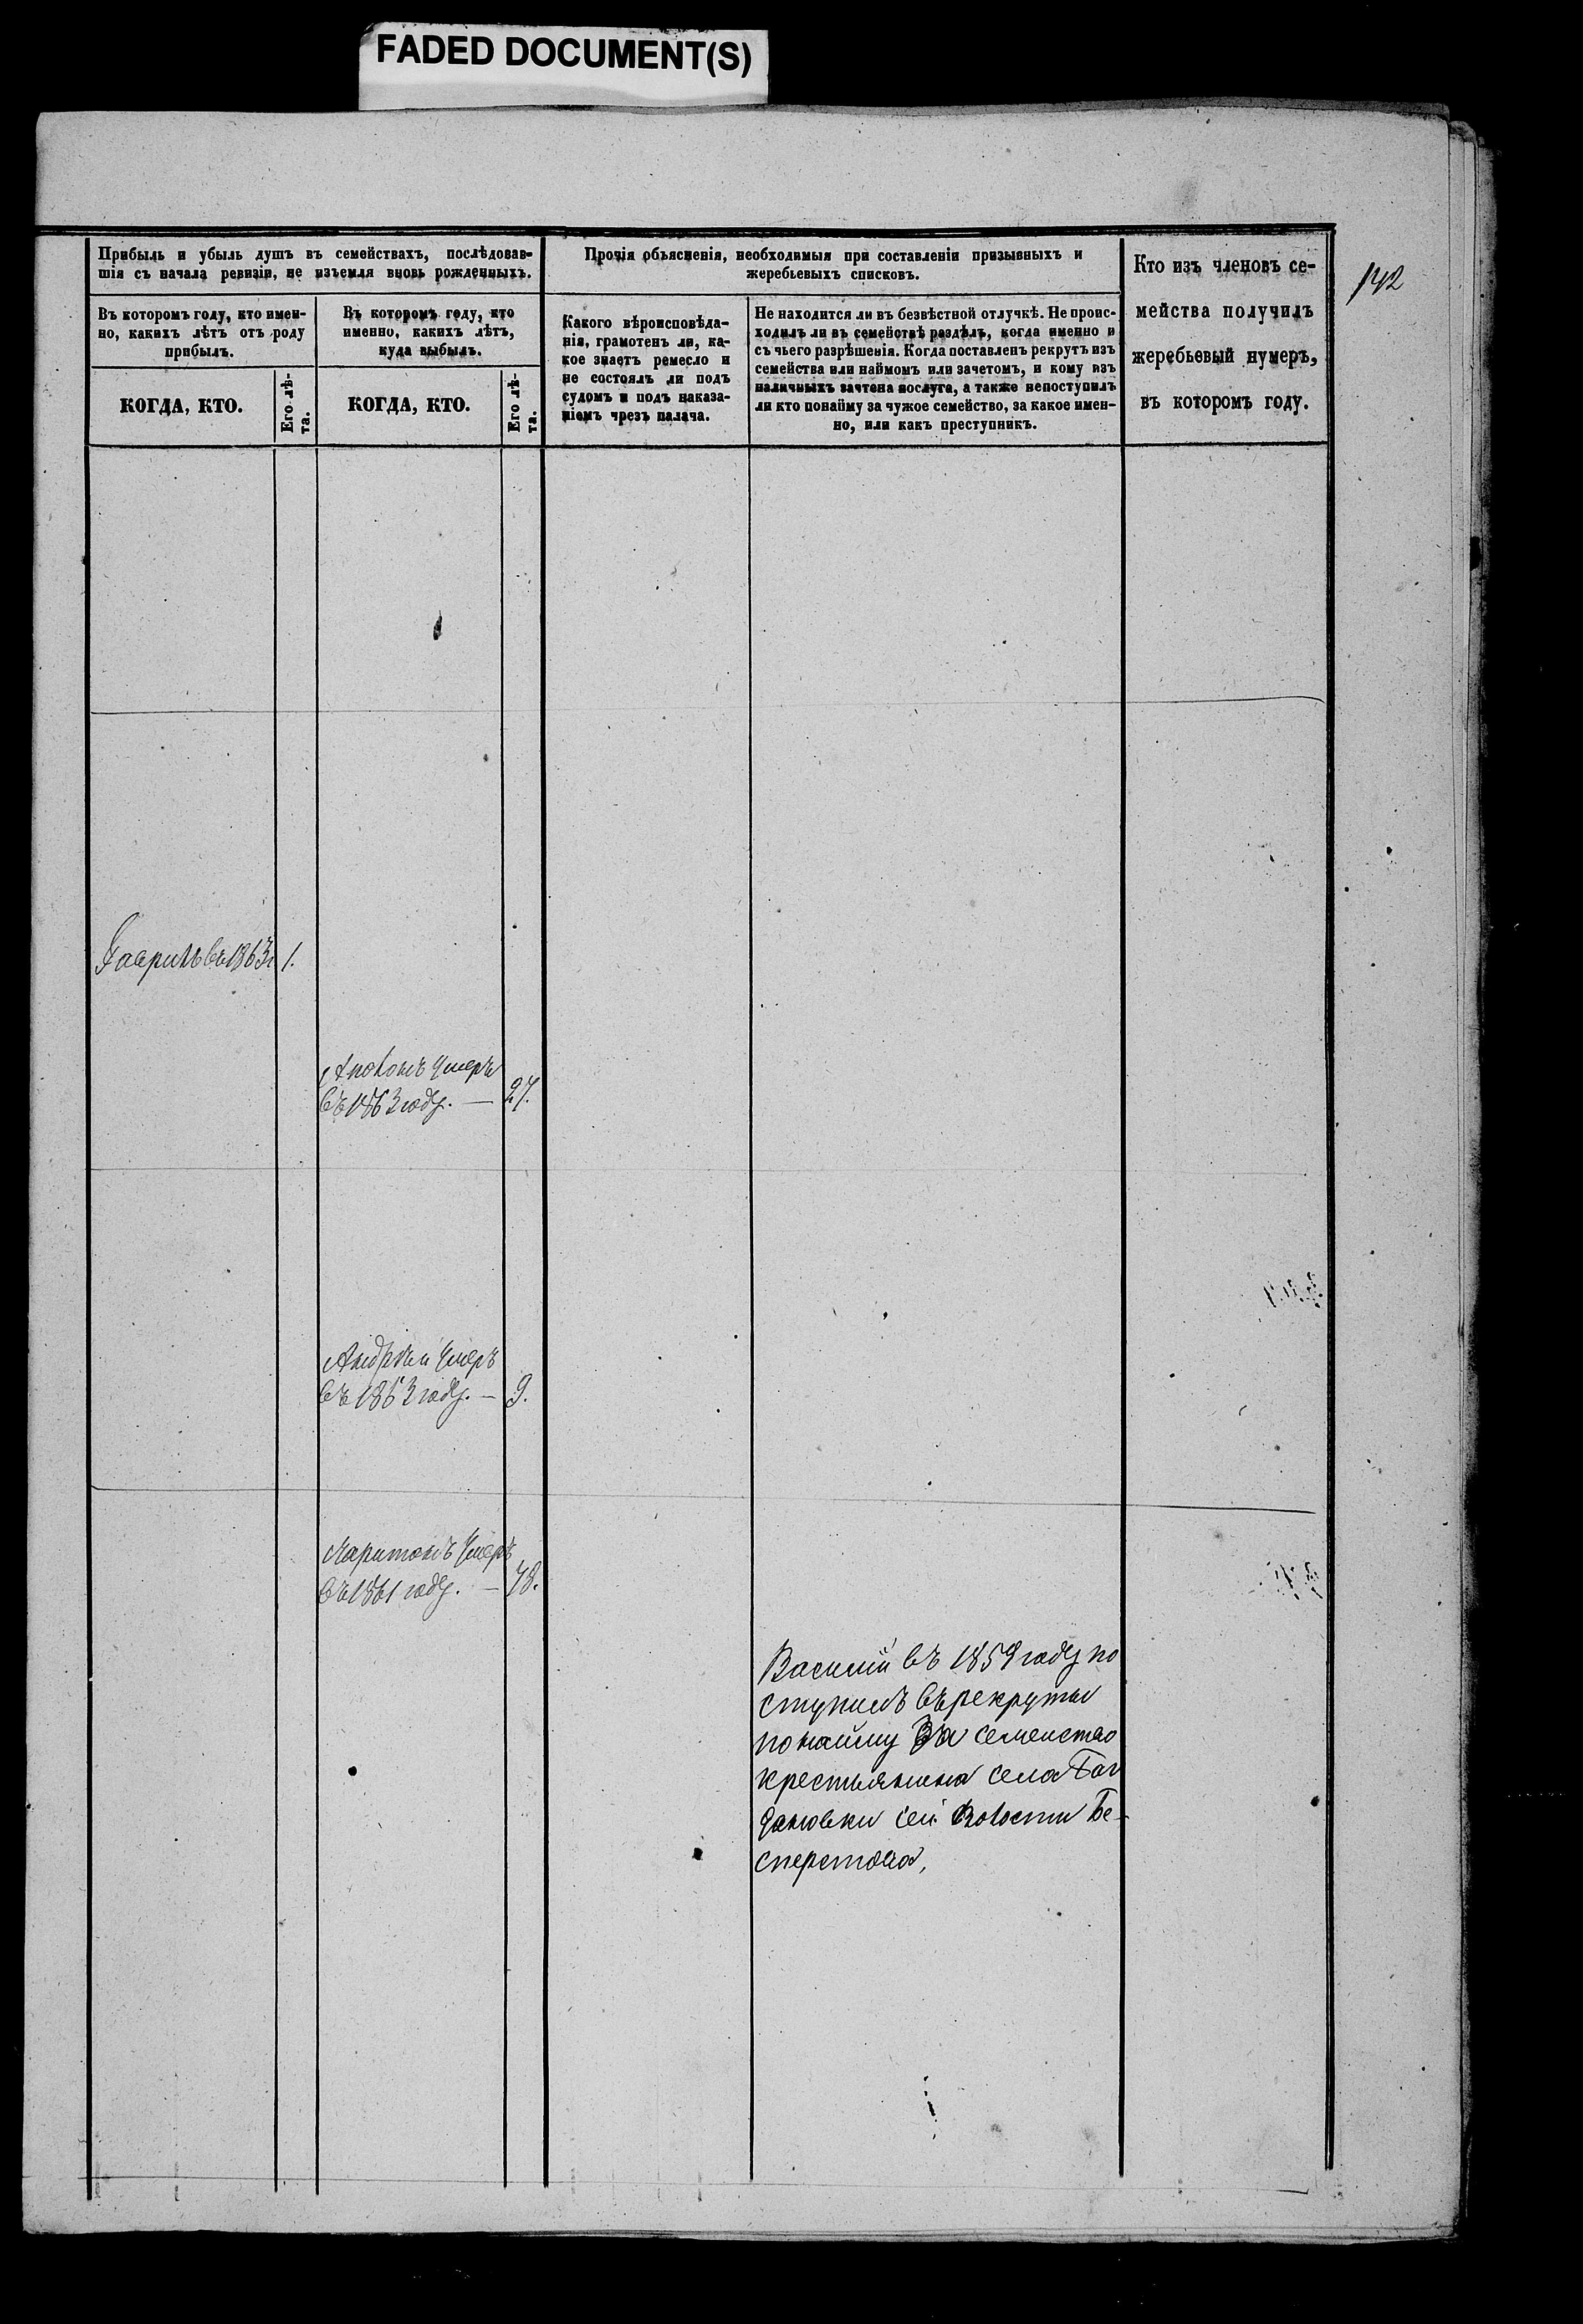 FADED DOCUMENT(S)
142
Прибыль и убыль душъ въ семействахъ, послѣдовав-
шія съ начала ревизіи, не изъемля вновь рожденныхъ.
Прочія объясненія, необходимыя при составленіи призывныхъ и
жеребьевыхъ списковъ.
Кто изъ членовъ се-
мейства получилъ
жеребьевый нумеръ,
въ которомъ году.
Въ которомъ году, кто имен-
но, какихъ лѣтъ отъ роду
прибылъ.
Въ которомъ году, кто
именно, какихъ лѣтъ,
куда выбылъ.
Какого вѣроисповѣда-
нія, грамотенъ ли, ка-
кое знаетъ ремесло и
не состоялъ ли подъ
судомъ и подъ наказа-
ніемъ чрезъ палача.
Не находится ли въ безвѣстной отлучкѣ. Не проис-
ходилъ ли въ семействѣ раздѣлъ, когда именно и
съ чьего разрѣшенія. Когда поставленъ рекрутъ изъ
семейства или наймомъ или зачетомъ, и кому изъ
наличныхъ зачтена послуга, а также непоступилъ
ли кто понайму за чужое семейство, за какое имен-
но, или какъ преступникъ.
КОГДА, КТО.
Его лѣ-
та.
КОГДА, КТО.
Его лѣ-
та.
въ 1863 1.
умеръ
въ 1863 году. — 27.
Андрей умеръ
въ 1863 году. — 9.
Харитонъ умеръ
въ 1861 году. — 78.
Василій въ 1859 году по
ступилъ въ рекруты
понайму За семейство
крестьянина села Бог
дановки сей волости Бе-